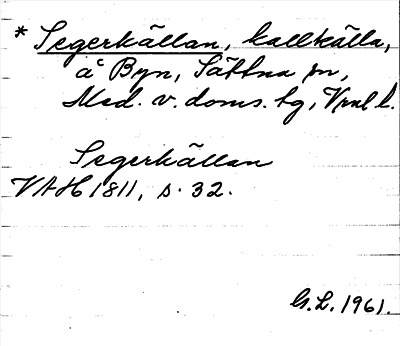 * Segerkällan, kallkälla,
å Byn, Sättna sn,
Med. v. doms. tg, Vnl l.
Segerkällan
VAH 1811, s. 32.
G.L. 1961.